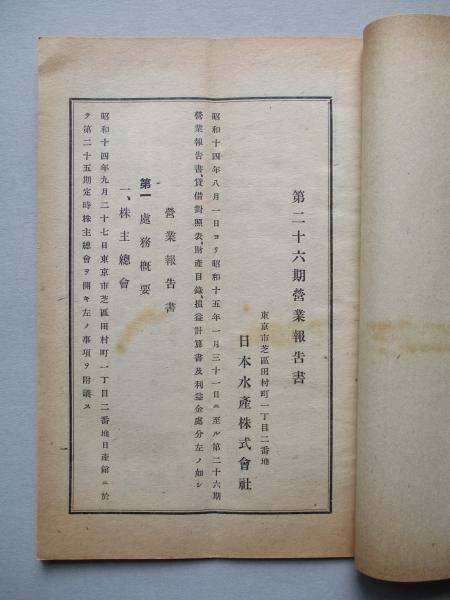 第二十六期營業報告書
東京市芝區田村町一丁目二番地
日本水產株式會社
昭和十四年八月一日ヨリ昭和十五年一月三十一日ニ至ル第二十六期
營業報告書、貸借對照表、財產目錄、損益計算書及利益金處分左ノ如シ
營業報告書
第一 處務概要
一、株主總會
昭和十四年九月二十七日東京市芝區田村町一丁目二番地日產館ニ於
テ第二十五期定時株主總會ヲ開キ左ノ事項ヲ附議ス